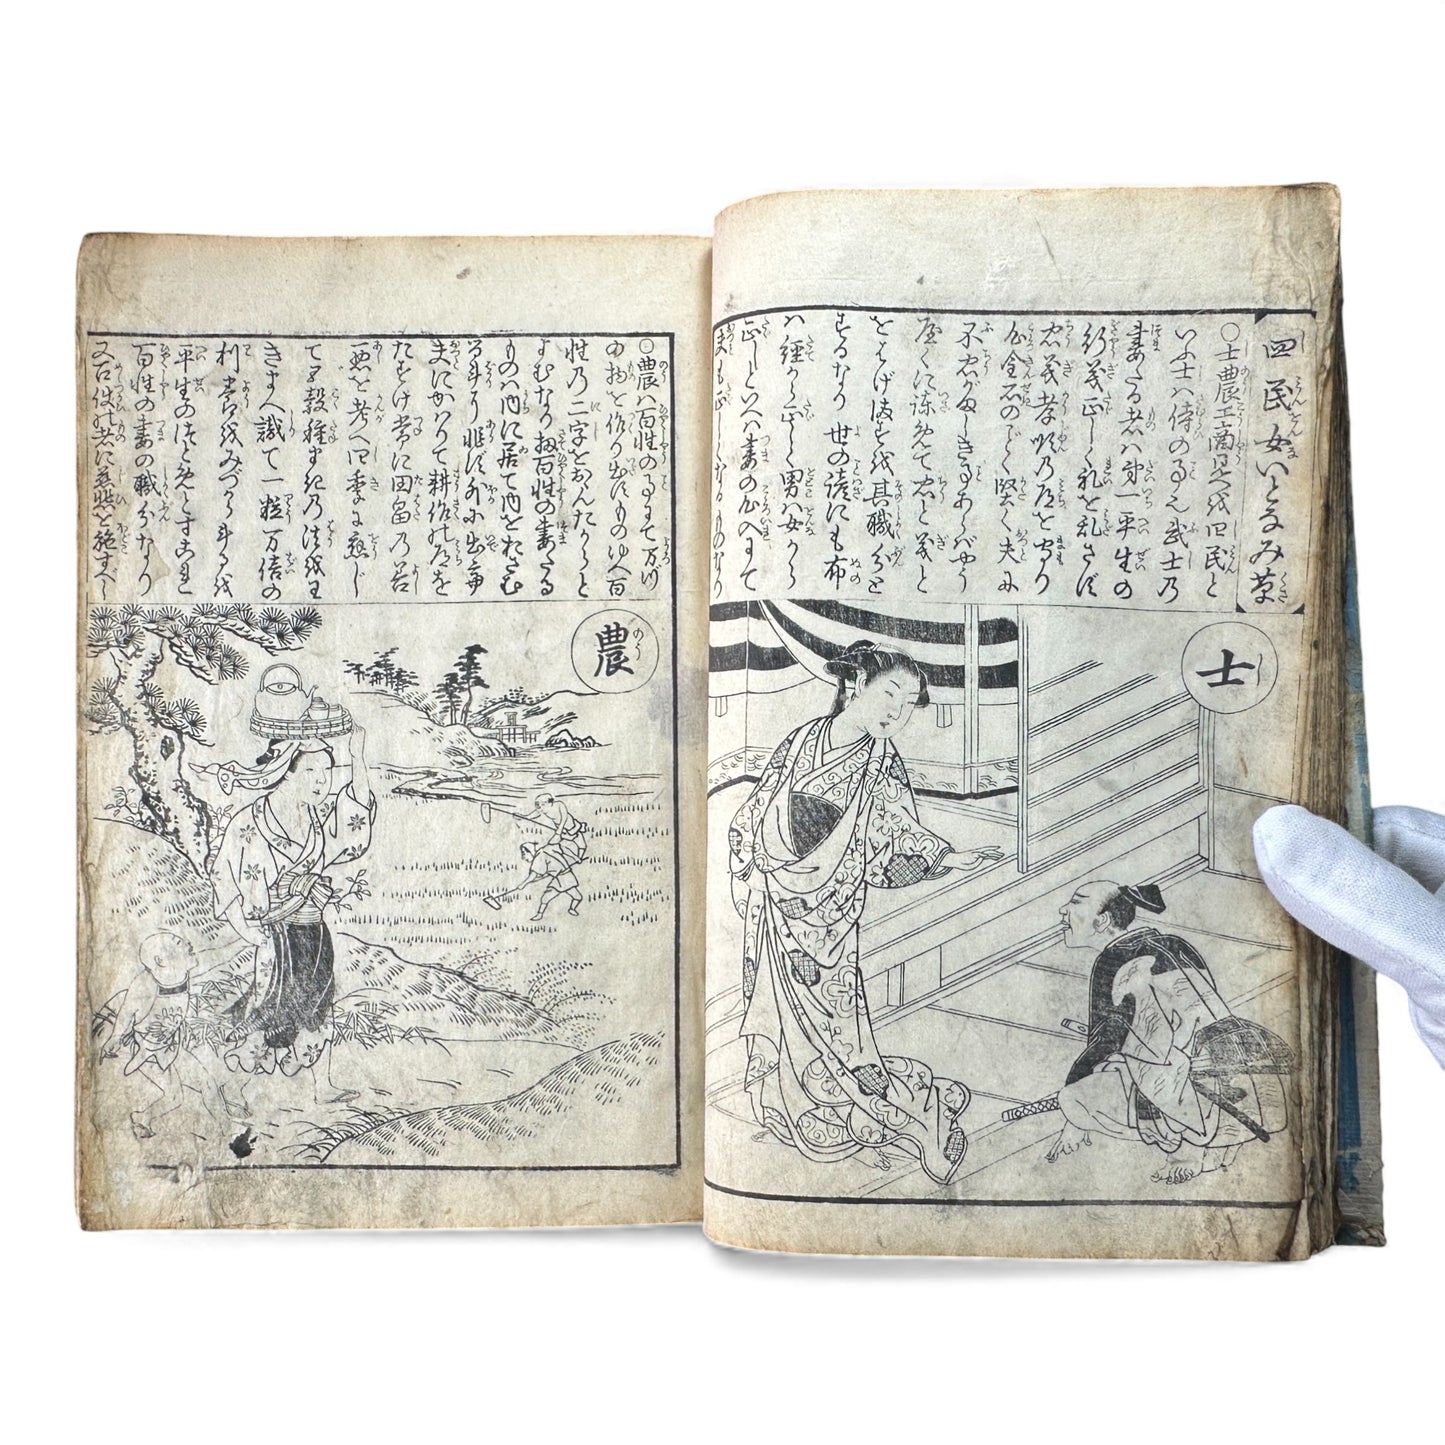 四民女いとなみ草
〇士農工商是を四民と
いふ士ハ侍の事也武士乃
妻たる者ハ第一平生の
行義正しく礼を乱さず
忠義孝順乃道を守り
心金石のごとく堅く夫に
不忠がましき事あらばゆう
屋くに諫めて忠と義と
をはげますを其職分と
するなり世の諺にも布
ハ経から正し男ハ女から
正しといへハ妻の心入にて
夫も正しくなるものなり
士
〇農ハ百性の事にて万づ
の物を作り出すものゆへ百
性乃二字をおんたからと
よむなり扨百性の妻たる
ものハ内に居て内をおさむ
る斗り非ず外に出て
夫にかわりて耕作の道を
たすけ常に田畠乃善
悪を考へ四季に応じ
て五穀種まき乃法を王
きまへ識て一粒万倍の
利潤をみづから斗るを
平生のつとめとす是
百性の妻の職分なり
又召仕の者に慈悲を施すべし
農